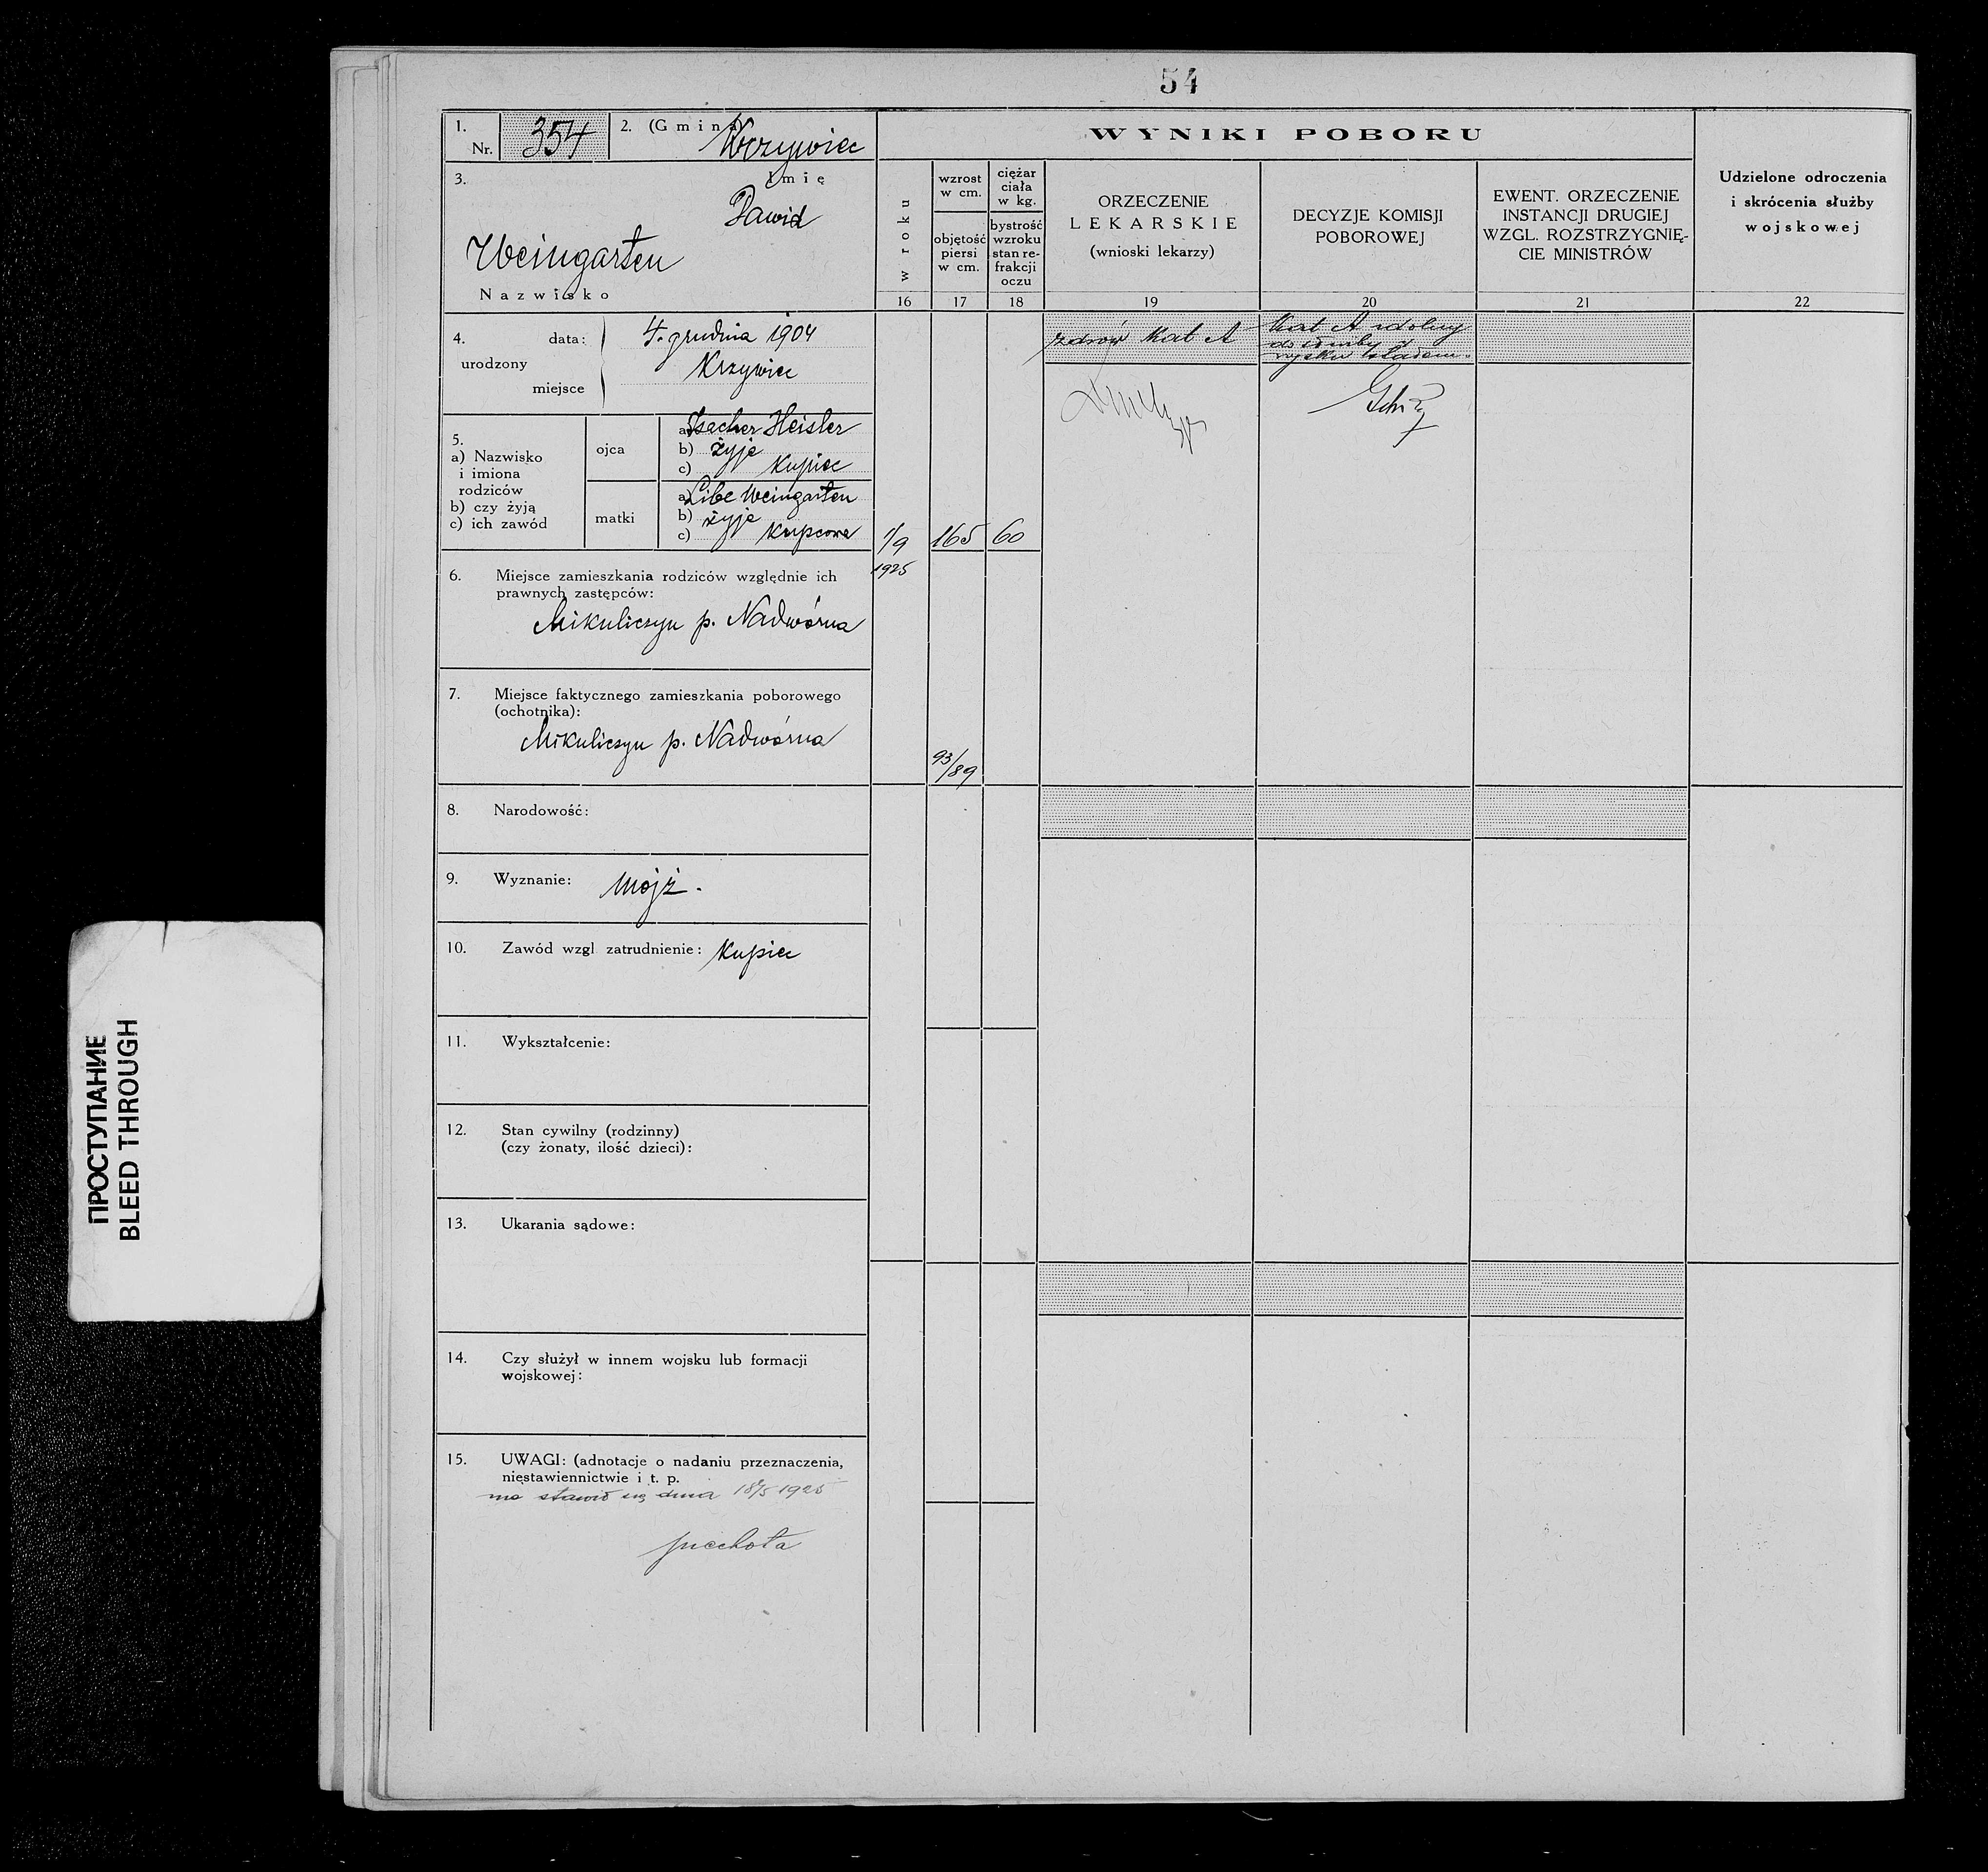 54
1. Nr. 354
2. (Gmina) Krzywiec
3. Imię
Dawid
Weingarten
Nazwisko
4. urodzony
data: 4. grudnia 1904
miejsce Krzywiec
5.
a) Nazwisko
i imiona
rodziców
b) czy żyją
c) ich zawód
ojca
a) Isacher Heisler
b) żyje
c) Kupiec
matki
a) Libe Weingarten
b) żyje
c) Kupcowa
6. Miejsce zamieszkania rodziców względnie ich
prawnych zastępców:
Mikuliczyn p. Nadwórna
7. Miejsce faktycznego zamieszkania poborowego
(ochotnika):
Mikuliczyn p. Nadwórna
8. Narodowość:
9. Wyznanie: mojż.
10. Zawód wzgl zatrudnienie: Kupiec
11. Wykształcenie:
12. Stan cywilny (rodzinny)
(czy żonaty, ilość dzieci):
13. Ukarania sądowe:
14. Czy służył w innem wojsku lub formacji
wojskowej:
15. UWAGI: (adnotacje o nadaniu przeznaczenia,
niestawiennictwie i t. p.
ma stawić się dnia 18/5 1925
piechota
WYNIKI POBORU
w roku
16
wzrost
w cm.
objętość
piersi
w cm.
17
ciężar
ciała
w kg.
bystrość
wzroku
stan re-
frakcji
oczu
18
ORZECZENIE
LEKARSKIE
(wnioski lekarzy)
19
DECYZJE KOMISJI
POBOROWEJ
20
EWENT. ORZECZENIE
INSTANCJI DRUGIEJ
WZGL. ROZSTRZYGNIĘ-
CIE MINISTRÓW
21
Udzielone odroczenia
i skrócenia służby
wojskowej
22
1/9
1925
165
60
93/89
zdrów Kat A
Kat A zdolny
do służby w
ПРОСТУПАНИЕ
BLEED THROUGH